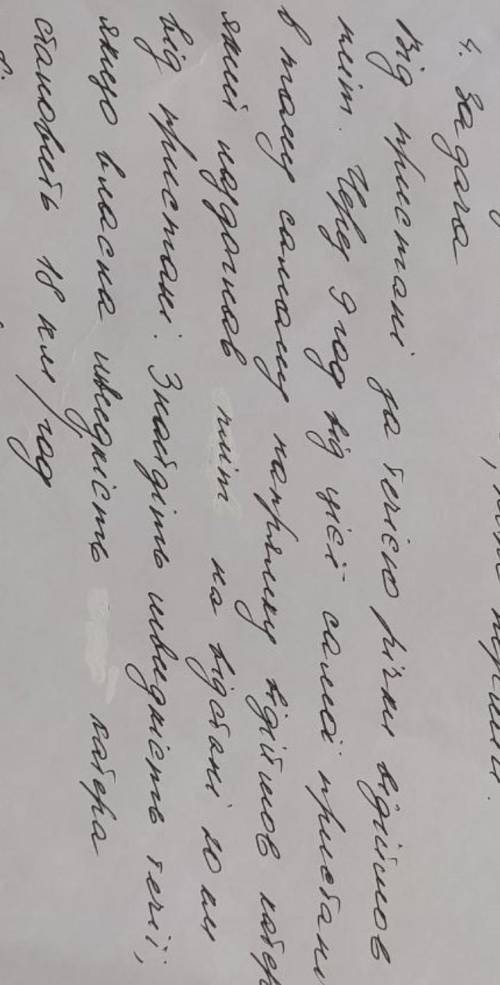 4. Задача
Від пристані за течією річки відійшов
пліт. Через 9 год від цієї самої пристані
в тому самому напрямку відійшов катер
який наздогнав пліт на відстані 20 км
від пристані. Знайдіть швидкість течії,
якщо власна швидкість катера
становить 18 км/год